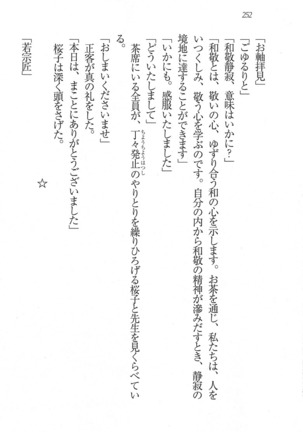 252
「お軸拝見」
「ごゆるりと」
「和敬静寂、意味はいかに?」
「和敬とは、敬いの心、ゆずり合う和の心を示します。お茶を通じ、私たちは、人を
いつくしみ、敬う心を学ぶのです。自分の内から和敬の精神が滲みだすとき、静寂の
境地に達することができます」
「いかにも。感服いたしました」
「どういたしまして」
茶席にいる全員が、丁々発止のやりとりを繰りひろげる桜子と先生を見くらべてい
ちょうちょうはっし
た。
「おしまいくださいませ」
正客が真の礼をした。
「本日は、まことにありがとうございました」
桜子は深く頭をさげた。
☆
「若宗匠」